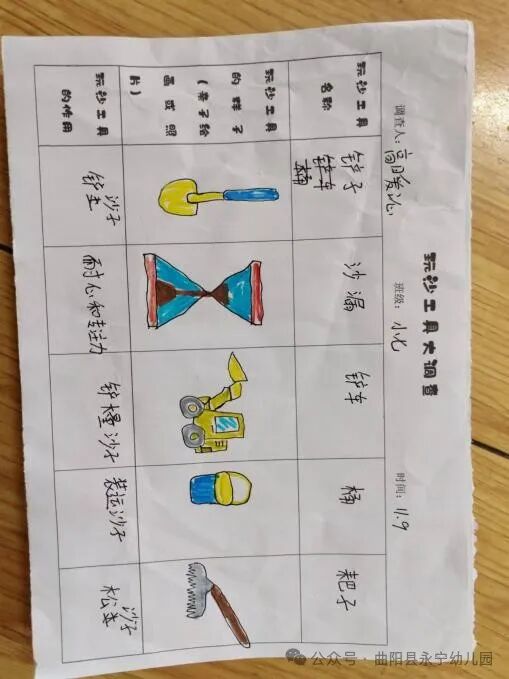 玩沙工具大调查
调查人：高
班级：小
时间：11.9
玩沙工具
名称
铲子
铲车
桶
沙漏
铲车
桶
耙子
玩沙工具
的样子
（亲子绘
画或照
片）
玩沙工具
的作用
沙子
铲土
耐心和专注力
铲 沙子
装运沙子
沙子
松
公众号·曲阳县永宁幼儿园